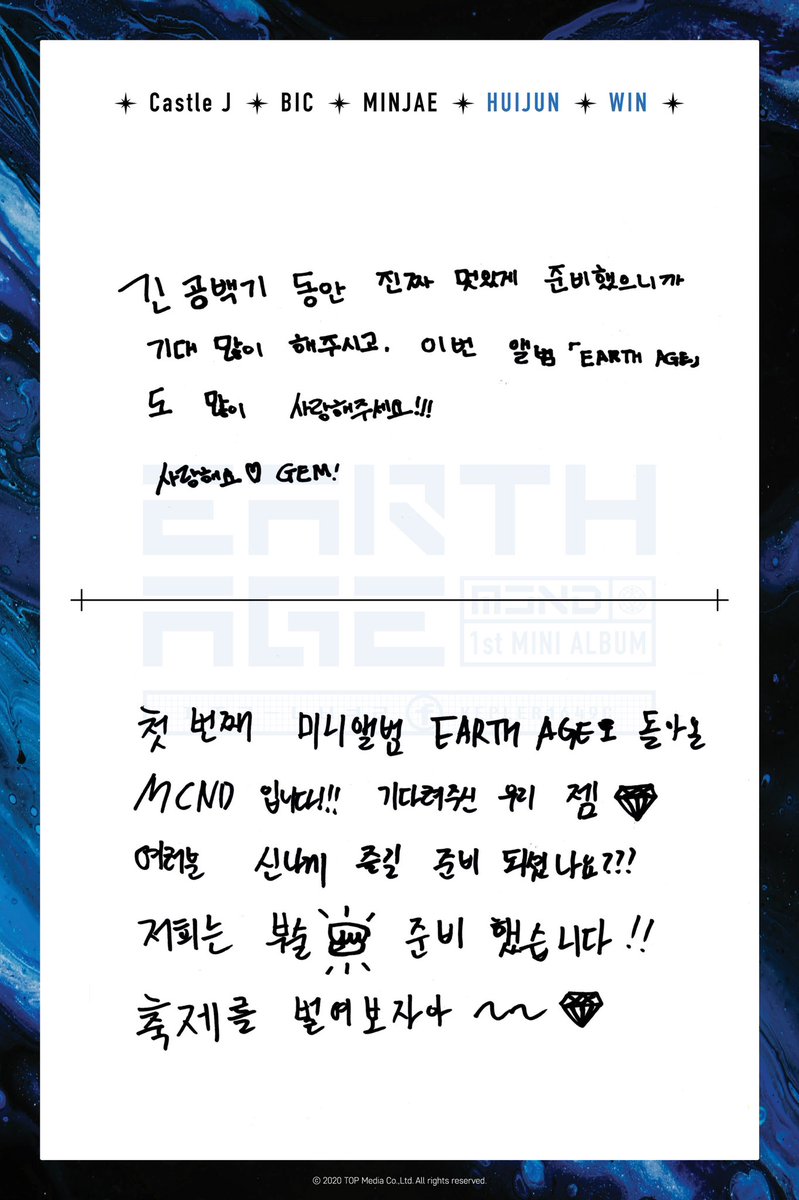 Castle J BIC MINJAE HUIJUN WIN
긴 공백기 동안 진짜 멋있게 준비했으니까
기대 많이 해주시고. 이번 앨범 「EARTH AGE」
도 많이 사랑해주세요!!!
사랑해요♡ GEM!
EARTH
AGE
MCND
1st MINI ALBUM
첫 번째 미니앨범 EARTH AGE로 돌아온
MCND 입니다!! 기다려주신 우리 젬
여러분 신나게 즐길 준비 되셨나요???
저희는 부술 준비 했습니다!!
축제를 벌여보자아 ~~
© 2020 TOP Media Co.,Ltd. All rights reserved.